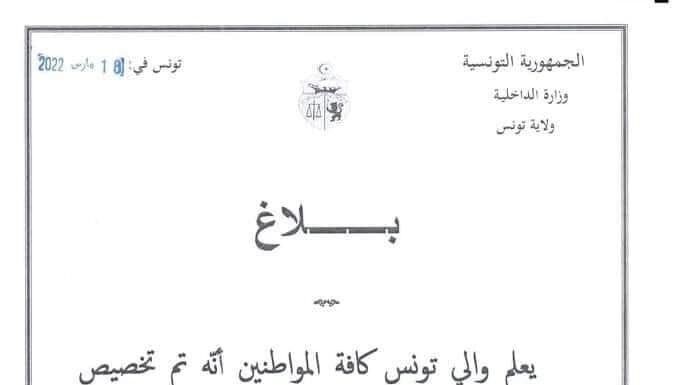 الجمهورية التونسية
وزارة الداخلية
ولاية تونس
تونس في: 18 مارس 2022
بـــــــلاغ
يعلم والي تونس كافة المواطنين أنّه تم تخصيص